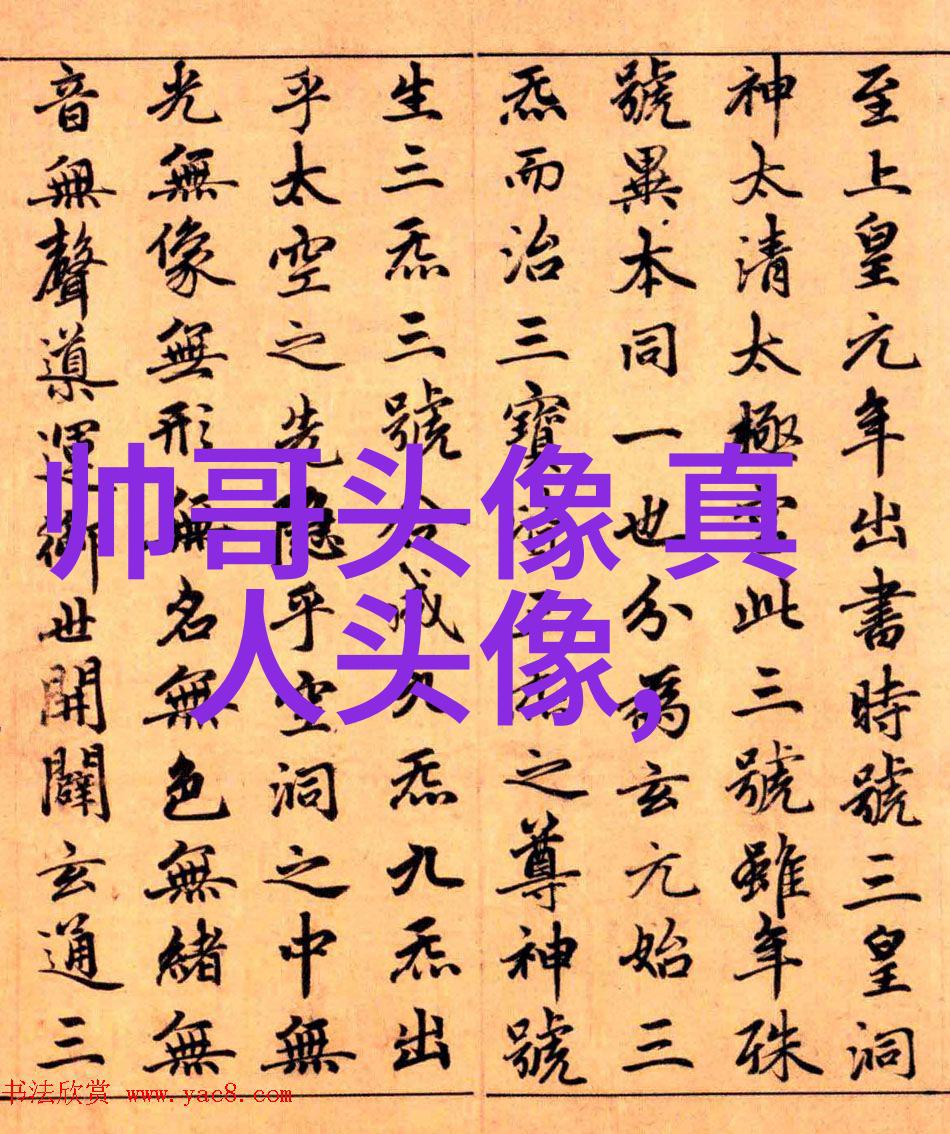 至上皇元年出書時號三皇洞
神太清太極宮此三號雖年殊
號異本同一也分爲玄元始三
炁而治三寶皆三炁之尊神號
生三炁三號合成九炁九炁出
乎太空之先隱乎空洞之中無
光無像無形無名無色無緒無
音無聲導運御世開闢玄通三
帅哥头像,真
人头像,
书法欣赏 www.yac8.com